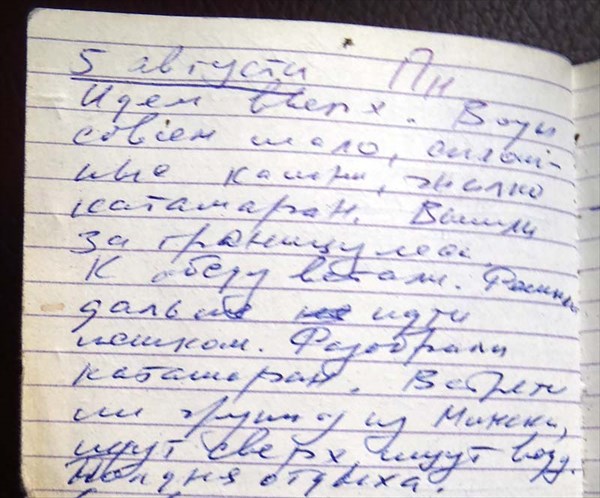 5 августа Пн
Идем вверх. Воды
совсем мало, сплош-
ные камни, жалко
катамаран. Вышли
за границу леса.
К обеду встали. Решили
дальше идти
пешком. Разобрали
катамаран. Встрети
ли группу из Минска,
идут сверх ищут воду.
Полдня отдыха.